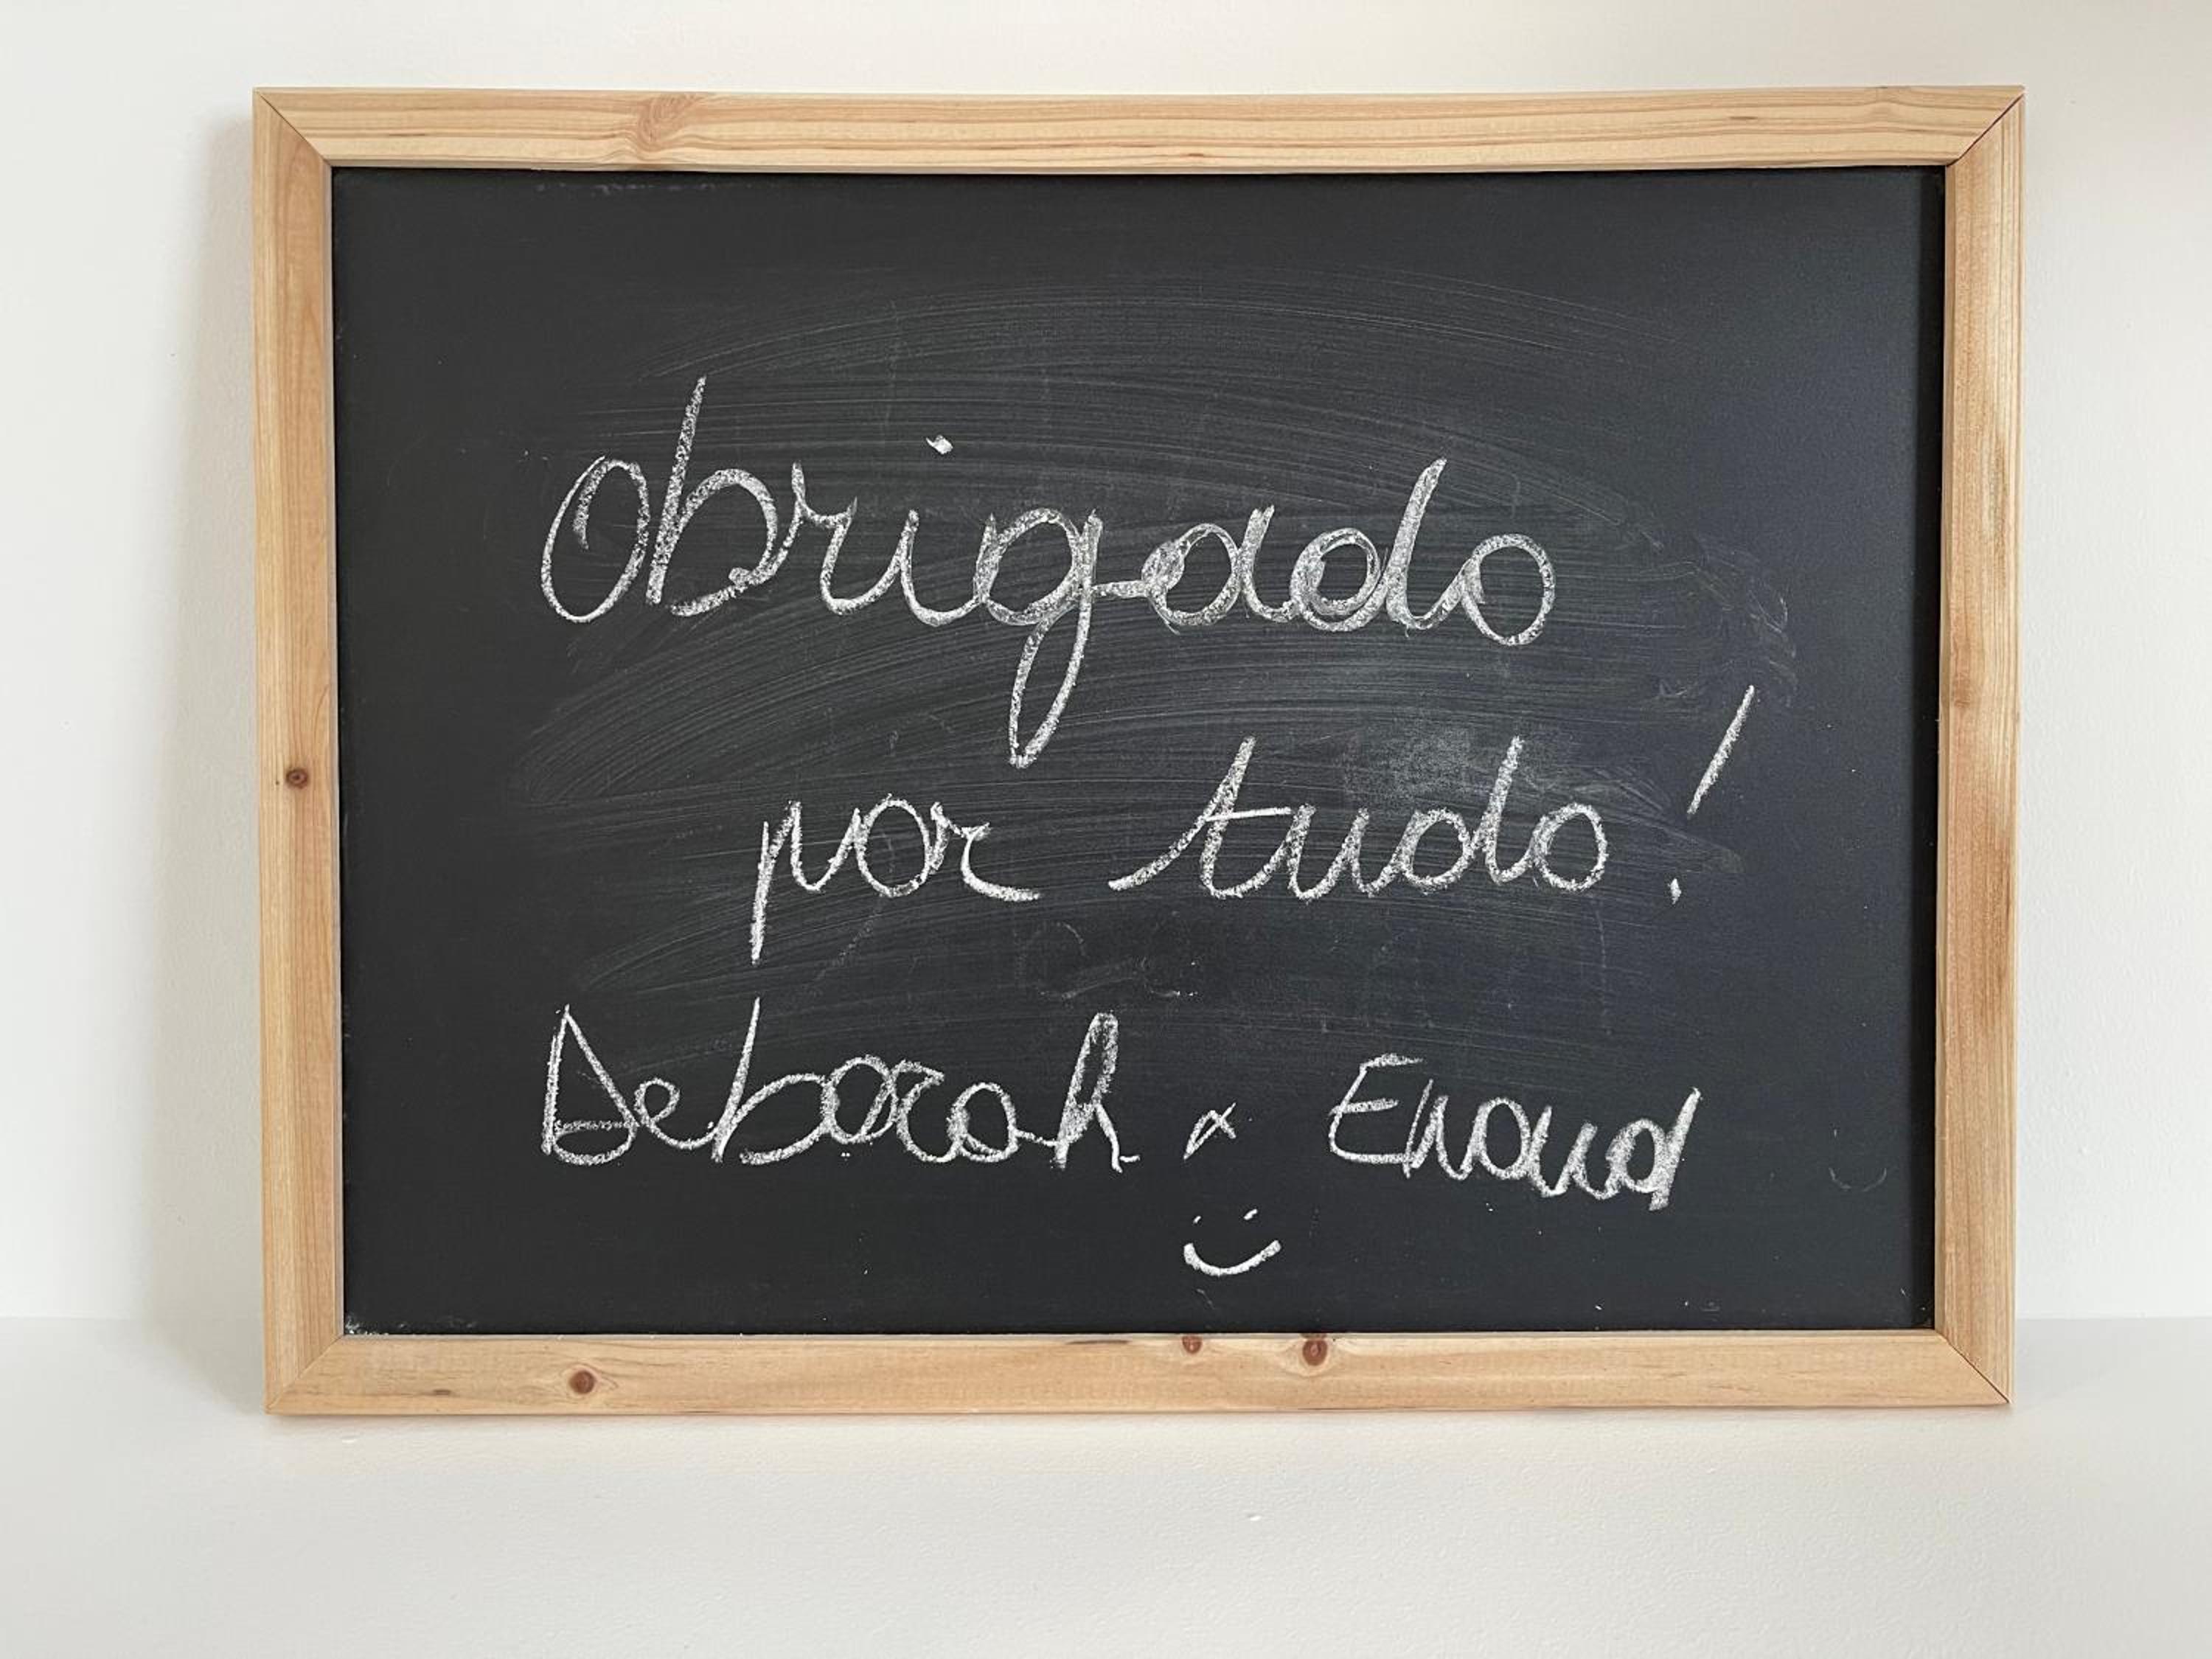 Obrigado
por tudo!
Deborah &